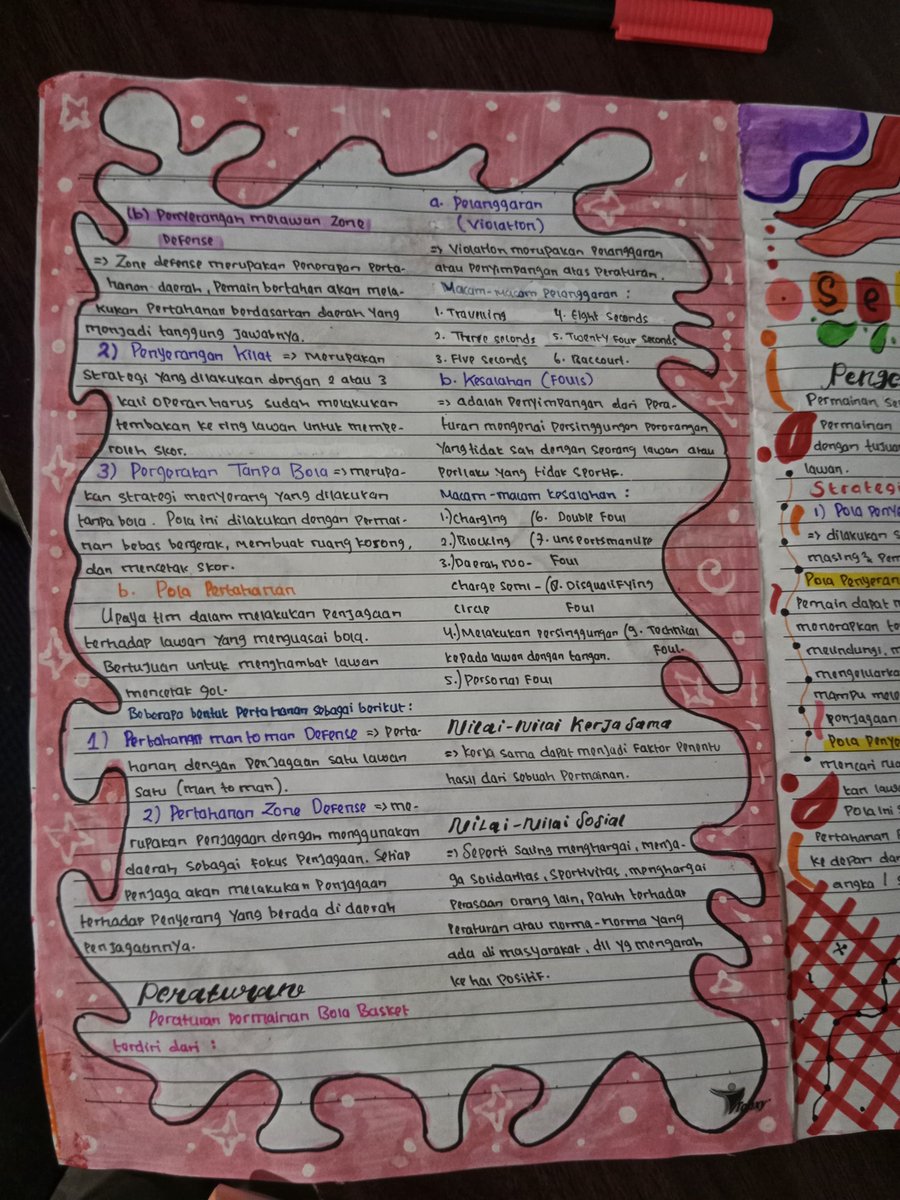 (b) Penyerangan melawan Zone
Defense
=> Zone defense merupakan Penerapan Perta-
hanan daerah, Pemain bertahan akan mela-
kukan Pertahanan berdasarkan daerah yang
menjadi tanggung Jawabnya.
2) Penyerangan Kilat => merupakan
strategi yang dilakukan dengan 2 atau 3
kali operan harus sudah melakukan
tembakan ke ring lawan untuk mempe-
roleh skor.
3) Pergerakan Tanpa Bola => merupa-
kan strategi menyerang yang dilakukan
tanpa bola. Pola ini dilakukan dengan Permai-
nan bebas bergerak, membuat ruang kosong,
dan mencetak skor.
b. Pola Pertahanan
Upaya tim dalam melakukan Penjagaan
terhadap lawan yang menguasai bola.
Bertujuan untuk menghambat lawan
mencetak gol.
Beberapa bentuk Pertahanan sebagai berikut:
1) Pertahanan man to man Defense => Perta-
hanan dengan Penjagaan satu lawan
satu (man to man).
2) Pertahanan Zone Defense => me-
rupakan Penjagaan dengan menggunakan
daerah sebagai fokus Penjagaan. Setiap
Penjaga akan melakukan Penjagaan
terhadap Penyerang yang berada di daerah
Penjagaannya.
Peraturan
Peraturan Permainan Bola Basket
terdiri dari :
a. Pelanggaran
(Violation)
=> Violation merupakan Pelanggaran
atau Penyimpangan atas Peraturan.
Macam-macam Pelanggaran :
1. Travelling 4. Eight Seconds
2. Three seconds 5. Twenty Four Seconds
3. Five seconds 6. Baccourt.
b. Kesalahan (Fouls)
=> adalah Penyimpangan dari Pera-
turan mengenai Persinggungan Perorangan
yang tidak sah dengan seorang lawan atau
Perilaku yang tidak sportif.
Macam-macam kesalahan :
1.) Charging (6. Double Foul
2.) Blocking (7. Unsportsmanlike
3.) Daerah nuo- Foul
charge semi- (8. Disqualifying
circap Foul
4.) Melakukan Persinggungan (9. Technical
kepada lawan dengan tangan. Foul.
5.) Personal Foul
Nilai-Nilai Kerja Sama
=> Kerja sama dapat menjadi Faktor Penentu
hasil dari sebuah Permainan.
Nilai-Nilai Sosial
=> Seperti saling menghargai, menja-
ga solidaritas, sportivitas, menghargai
Perasaan orang lain, Patuh terhadap
Peraturan atau norma-norma yang
ada di masyarakat, dll yg mengarah
ke hal Positif.
Se
Penge
Permainan se
Permainan
dengan tujua
lawan.
Strategi
1) Pola Penye
=> dilakukan s
masing2 Pem
Pola Penyeran
Pemain dapat m
menerapkan te
meundungi, m
mengeluarka
mampu mele
Penjagaan
Pola Penye
mencari rua
kan lawa
Pola ini s
Pertahanan P
ke depan dan
angka / s